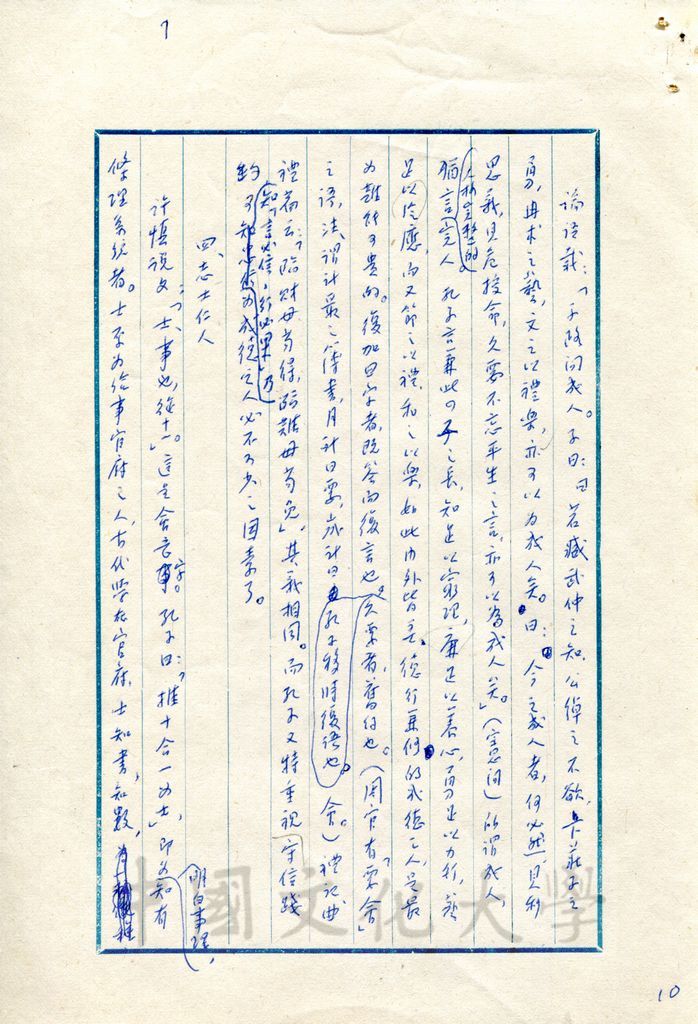 7
論語載：「子路問成人。子曰：曰若臧武仲之知，公綽之不欲，卞莊子之
勇，冉求之藝，文之以禮樂，亦可以為成人矣。曰：今之成人者，何必然，見利
思義，見危授命，久要不忘平生之言，亦可以為成人矣。」（憲問）所謂成人，
人格完整的
猶言完人 孔子言兼此四子之長，知足以窮理，廉足以養心，勇足以力行，藝
足以泛應，而又節之以禮，和之以樂，如此內外皆善，德行兼備的成德之人，是最
為難能可貴的。復加曰字者，既答而復言也。久要者，舊約也。（周官有「要會」
之語，法謂計最之簿書，月計曰要，歲計曰 孔子移時復語也。 會。）禮記曲
禮篇云：「臨財毋苟得，臨難毋苟免」，其義相同。而孔子又特重視守信踐
知「言必信，行必果」乃
約 可知 為成德之人必不可少之因素了。
四、志士仁人
許慎說文：「士，事也，從十一。」這是會意字。孔子曰：「推十合一為士」，即為知有
明白事理，
條理系統者。士系為給事官府之人，古代學在官府，士知書，知數，
中國文化大學
10